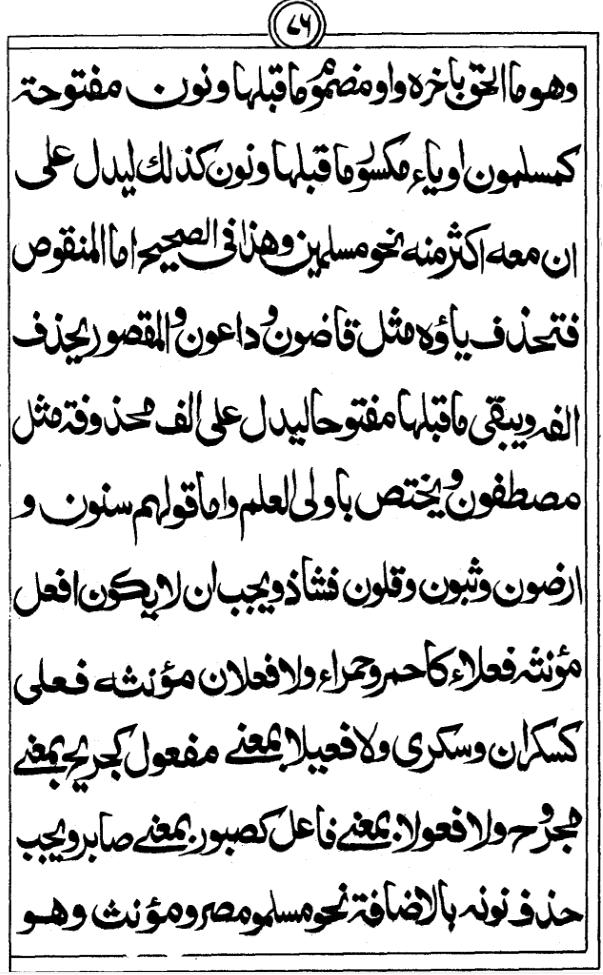 ٧٦
وهو ما الحق باخره واو مضموم ما قبلها ونون مفتوحة
كمسلمون او ياء مكسور ما قبلها ونون كذلك ليدل على
ان معه اكثر منه نحو مسلمين وهذا فى الصحيح اما المنقوص
فتحذف ياؤه مثل قاضون وداعون والمقصور يحذف
الفه ويبقى ما قبلها مفتوحا ليدل على الف محذوفة مثل
مصطفون ويختص باولى العلم واما قولهم سنون و
ارضون وثبون وقلون فشاذ ويجب ان لا يكون افعل
مؤنثه فعلاء كاحمر وحمراء ولا فعلان مؤنثه فعلى
كسكران وسكرى ولا فعيلا بمعنے مفعول كجريح بمعنے
مجروح ولا فعولا بمعنے فاعل كصبور بمعنے صابر ويجب
حذف نونه بالاضافة نحو مسلمو مصر ومؤنث وهو